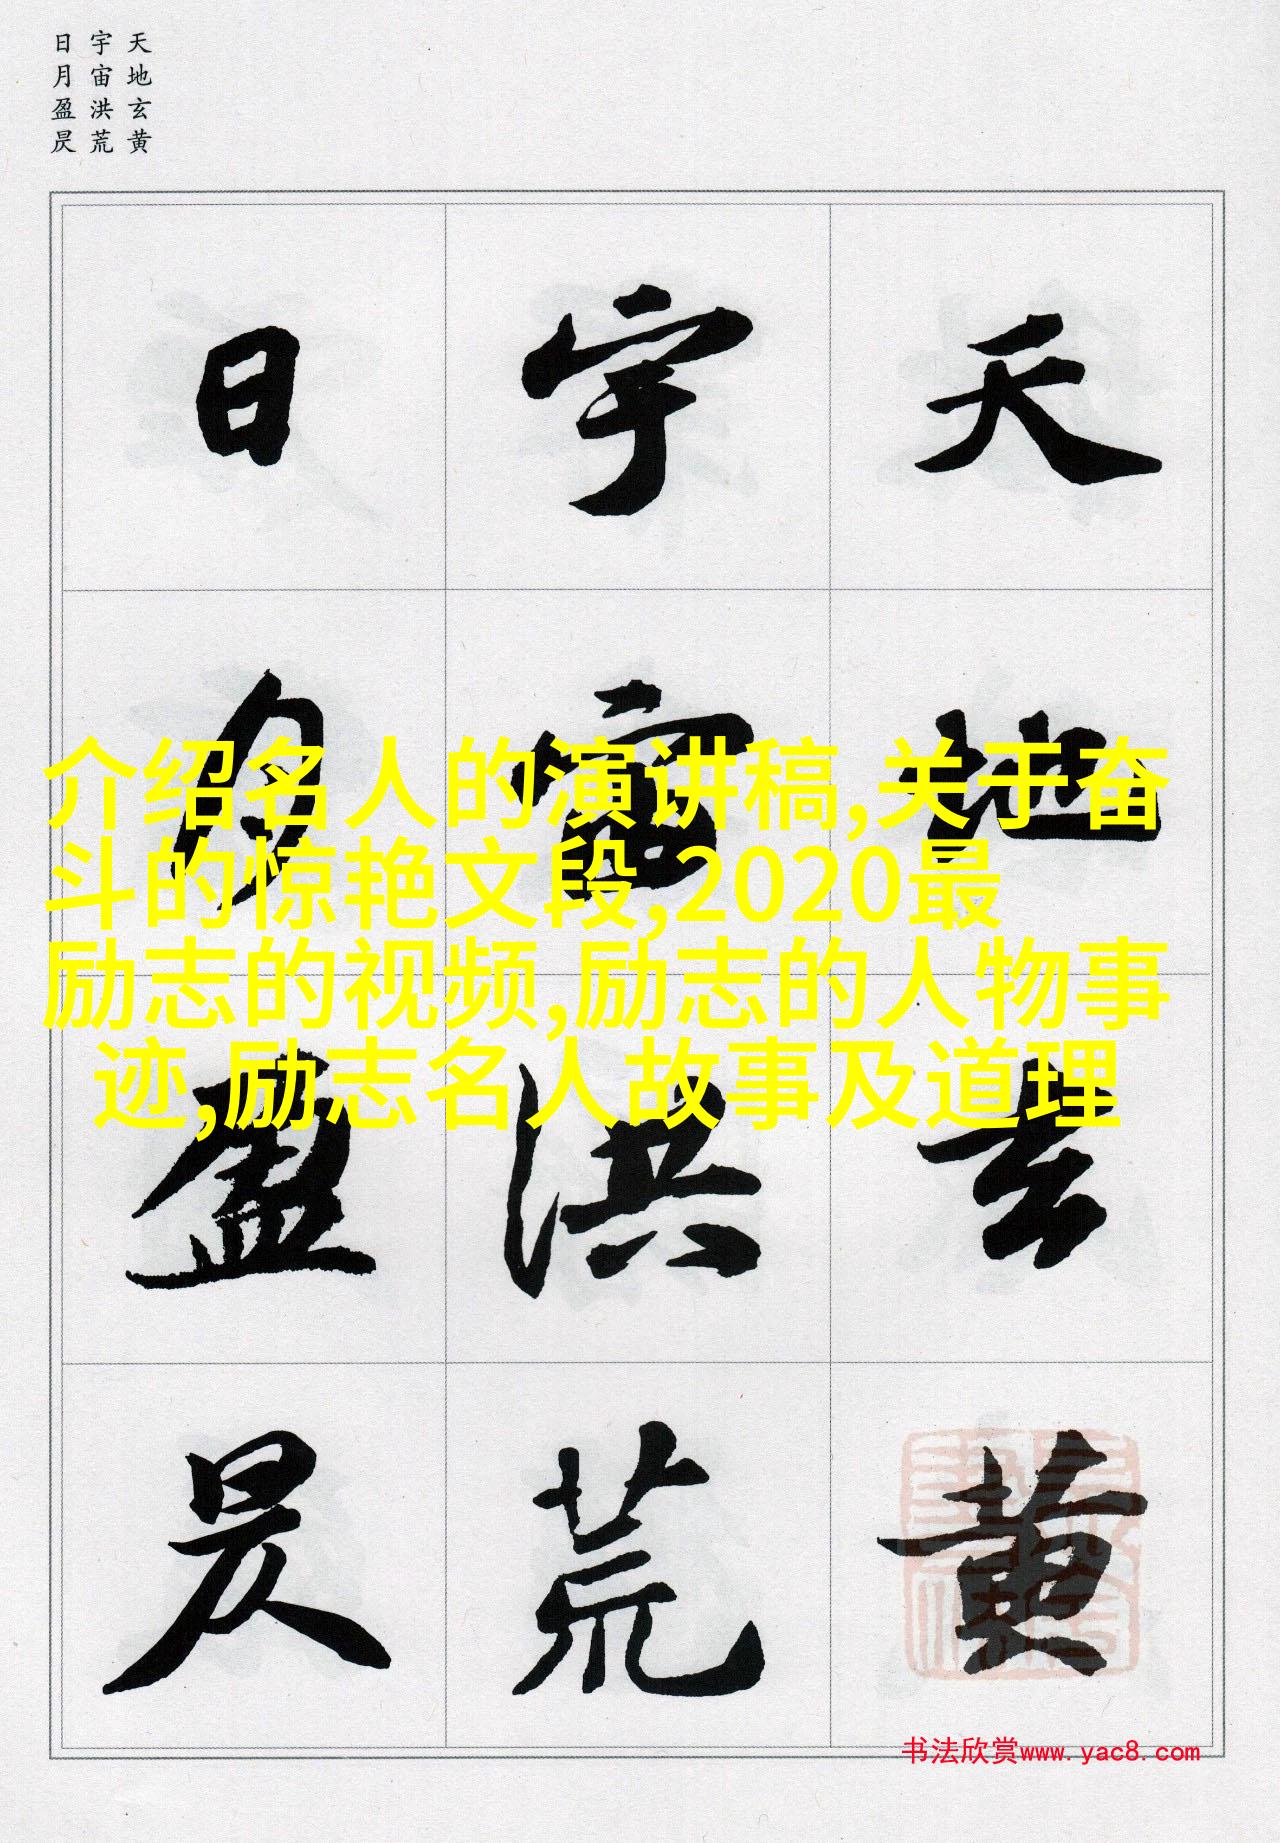 天地玄黄
宇宙洪荒
日月盈昃
天地玄黄
宇宙洪荒
日月盈昃
介绍名人的演讲稿,关于奋
斗的惊艳文段,2020最
励志的视频,励志的人物事
迹,励志名人故事及道理
书法欣赏www.yac8.com